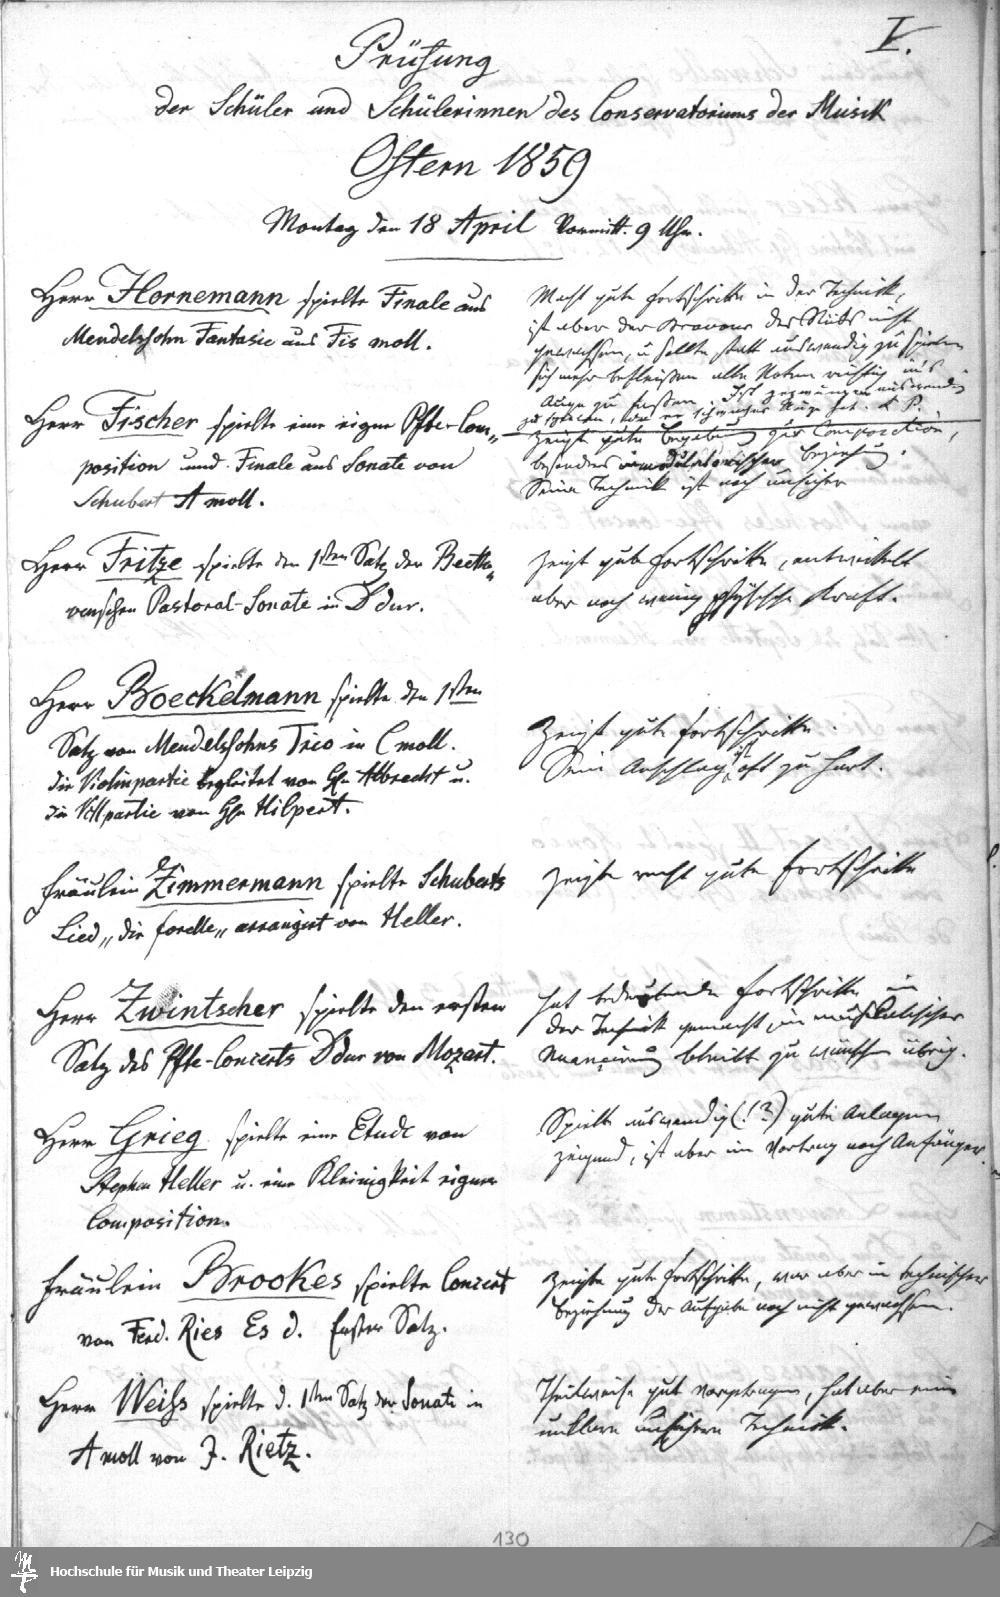 I.
Prüfung
der Schüler und Schülerinnen des Conservatoriums der Musik
Ostern 1859
Montag den 18 April Vormitt. 9 Uhr.
Herr Hornemann spielte Finale aus
Mendelssohn Fantasie aus Fis moll.
Macht gute Fortschritte in der Technik,
ist aber der Bravour des Stücks nicht
gewachsen, u sollte statt auswendig zu spielen
sich mehr befleißen alle Noten richtig ins
Auge zu fassen. Ist gezwungen auswendig
zu spielen, da er schwache Augen hat. L P.
Herr Fischer spielte eine eigne Pfte-Com„
position und Finale aus Sonate von
Schubert A moll.
Zeigt gute Begabung zur Composition,
besonders in modulatorischer Beziehung.
Seine Technik ist noch unsicher
Herr Fritze spielte den 1sten Satz der Beetho„
venschen Pastoral-Sonate in D dur.
Zeigt gute Fortschritte, entwickelt
aber noch wenig physische Kraft.
Herr Boeckelmann spielte den 1sten
Satz von Mendelssohns Trio in C moll.
die Violinpartie begleitet von H. Albrecht u.
die Vcllpartie von H. Hilpert.
Zeigt gute Fortschritte.
Sein Anschlag ist oft zu hart.
Fräulein Zimmermann spielte Schuberts
Lied „die Forelle„ arrangirt von Heller.
Zeigte recht gute Fortschritte
Herr Zwintscher spielte den ersten
Satz des Pfte-Concerts D dur von Mozart.
hat bedeutende Fortschritte in
der Technik gemacht, in musikalischer
Nuancirung bleibt zu wünschen übrig.
Herr Grieg spielte eine Etude von
Stephan Heller u. eine Kleinigkeit eigner
Composition.
Spielte auswendig (!?) gute Anlagen
zeigend, ist aber im Vortrag noch Anfänger.
Fräulein Brookes spielte Concert
von Ferd. Ries Es d. Erster Satz.
Zeigte gute Fortschritte, war aber in technischer
Beziehung der Aufgabe noch nicht gewachsen.
Herr Weiss spielte d. 1sten Satz der Sonate in
A moll von J. Rietz.
Theilweise gut vorgetragen, hat aber eine
unklare unsichere Technik.
130
Hochschule für Musik und Theater Leipzig